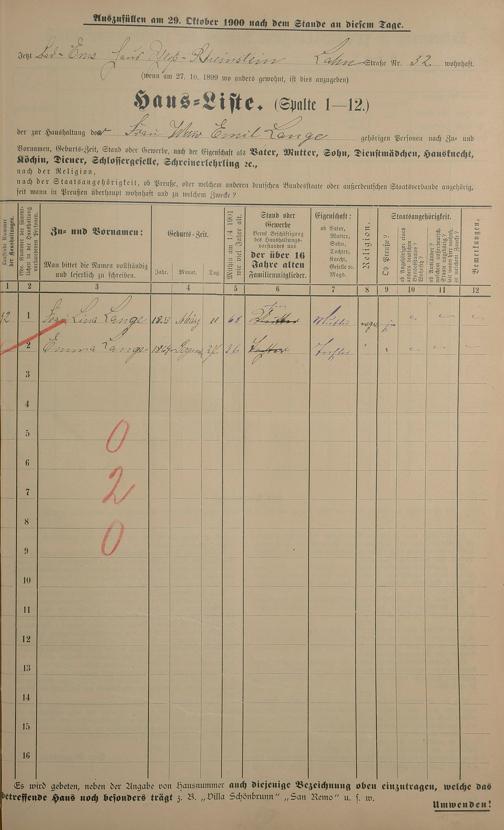 Auszufüllen am 29. Oktober 1900 nach dem Stande an diesem Tage.
Jetzt Bad-Ems Haus Rheinstein Lahn Straße Nr. 32 wohnhaft.
(wenn am 27. 10. 1899 wo anders gewohnt, ist dies anzugeben)
Haus-Liste. (Spalte 1—12.)
der zur Haushaltung der Frau Wwe Emil Lange gehörigen Personen nach Zu- und
Vornamen, Geburts-Zeit, Stand oder Gewerbe, nach der Eigenschaft als Vater, Mutter, Sohn, Dienstmädchen, Hausknecht,
Köchin, Diener, Schlossergeselle, Schreinerlehrling ec.,
nach der Religion,
nach der Staatsangehörigkeit, ob Preuße, oder welchem anderen deutschen Bundesstaate oder außerdeutschen Staatsverbande angehörig,
seit wann in Preußen überhaupt wohnhaft und zu welchem Zwecke?
Zu- und Vornamen:
Man bittet die Namen vollständig und leserlich zu schreiben.
Geburts-Zeit.
Jahr. Monat. Tag.
Mithin am 1/4 1901 wie viel Jahre alt.
Stand oder Gewerbe
der über 16 Jahre alten Familienmitglieder.
Eigenschaft:
ob Vater, Mutter, Sohn, Tochter, Knecht, Geselle od. Magd.
Religion.
Staatsangehörigkeit.
Ob Preuße?
Bemerkungen.
1 2 3 4 5 6 7 8 9 10 11 12
1 Frau Lina Lange 68 Mutter
2 Emma Lange 27 36 Tochter
3
4
5 0
6
7 2
8
9 0
10
11
12
13
14
15
16
Es wird gebeten, neben der Angabe von Hausnummer auch diejenige Bezeichnung oben einzutragen, welche das
betreffende Haus noch besonders trägt z. B. „Villa Schönbrunn" „San Remo" u. s. w.
Umwenden!